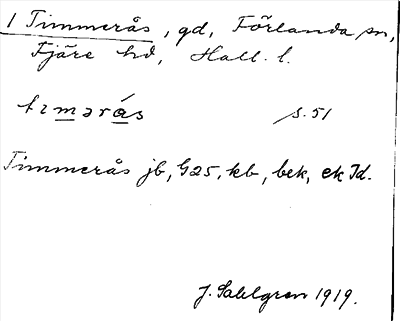 1 Timmerås, gd, Förlanda sn,
Fjäre hd, Hall. l.
tɩmərás s. 51
Timmerås jb, G25, kb, bek, ek Id.
J. Sahlgren 1919.